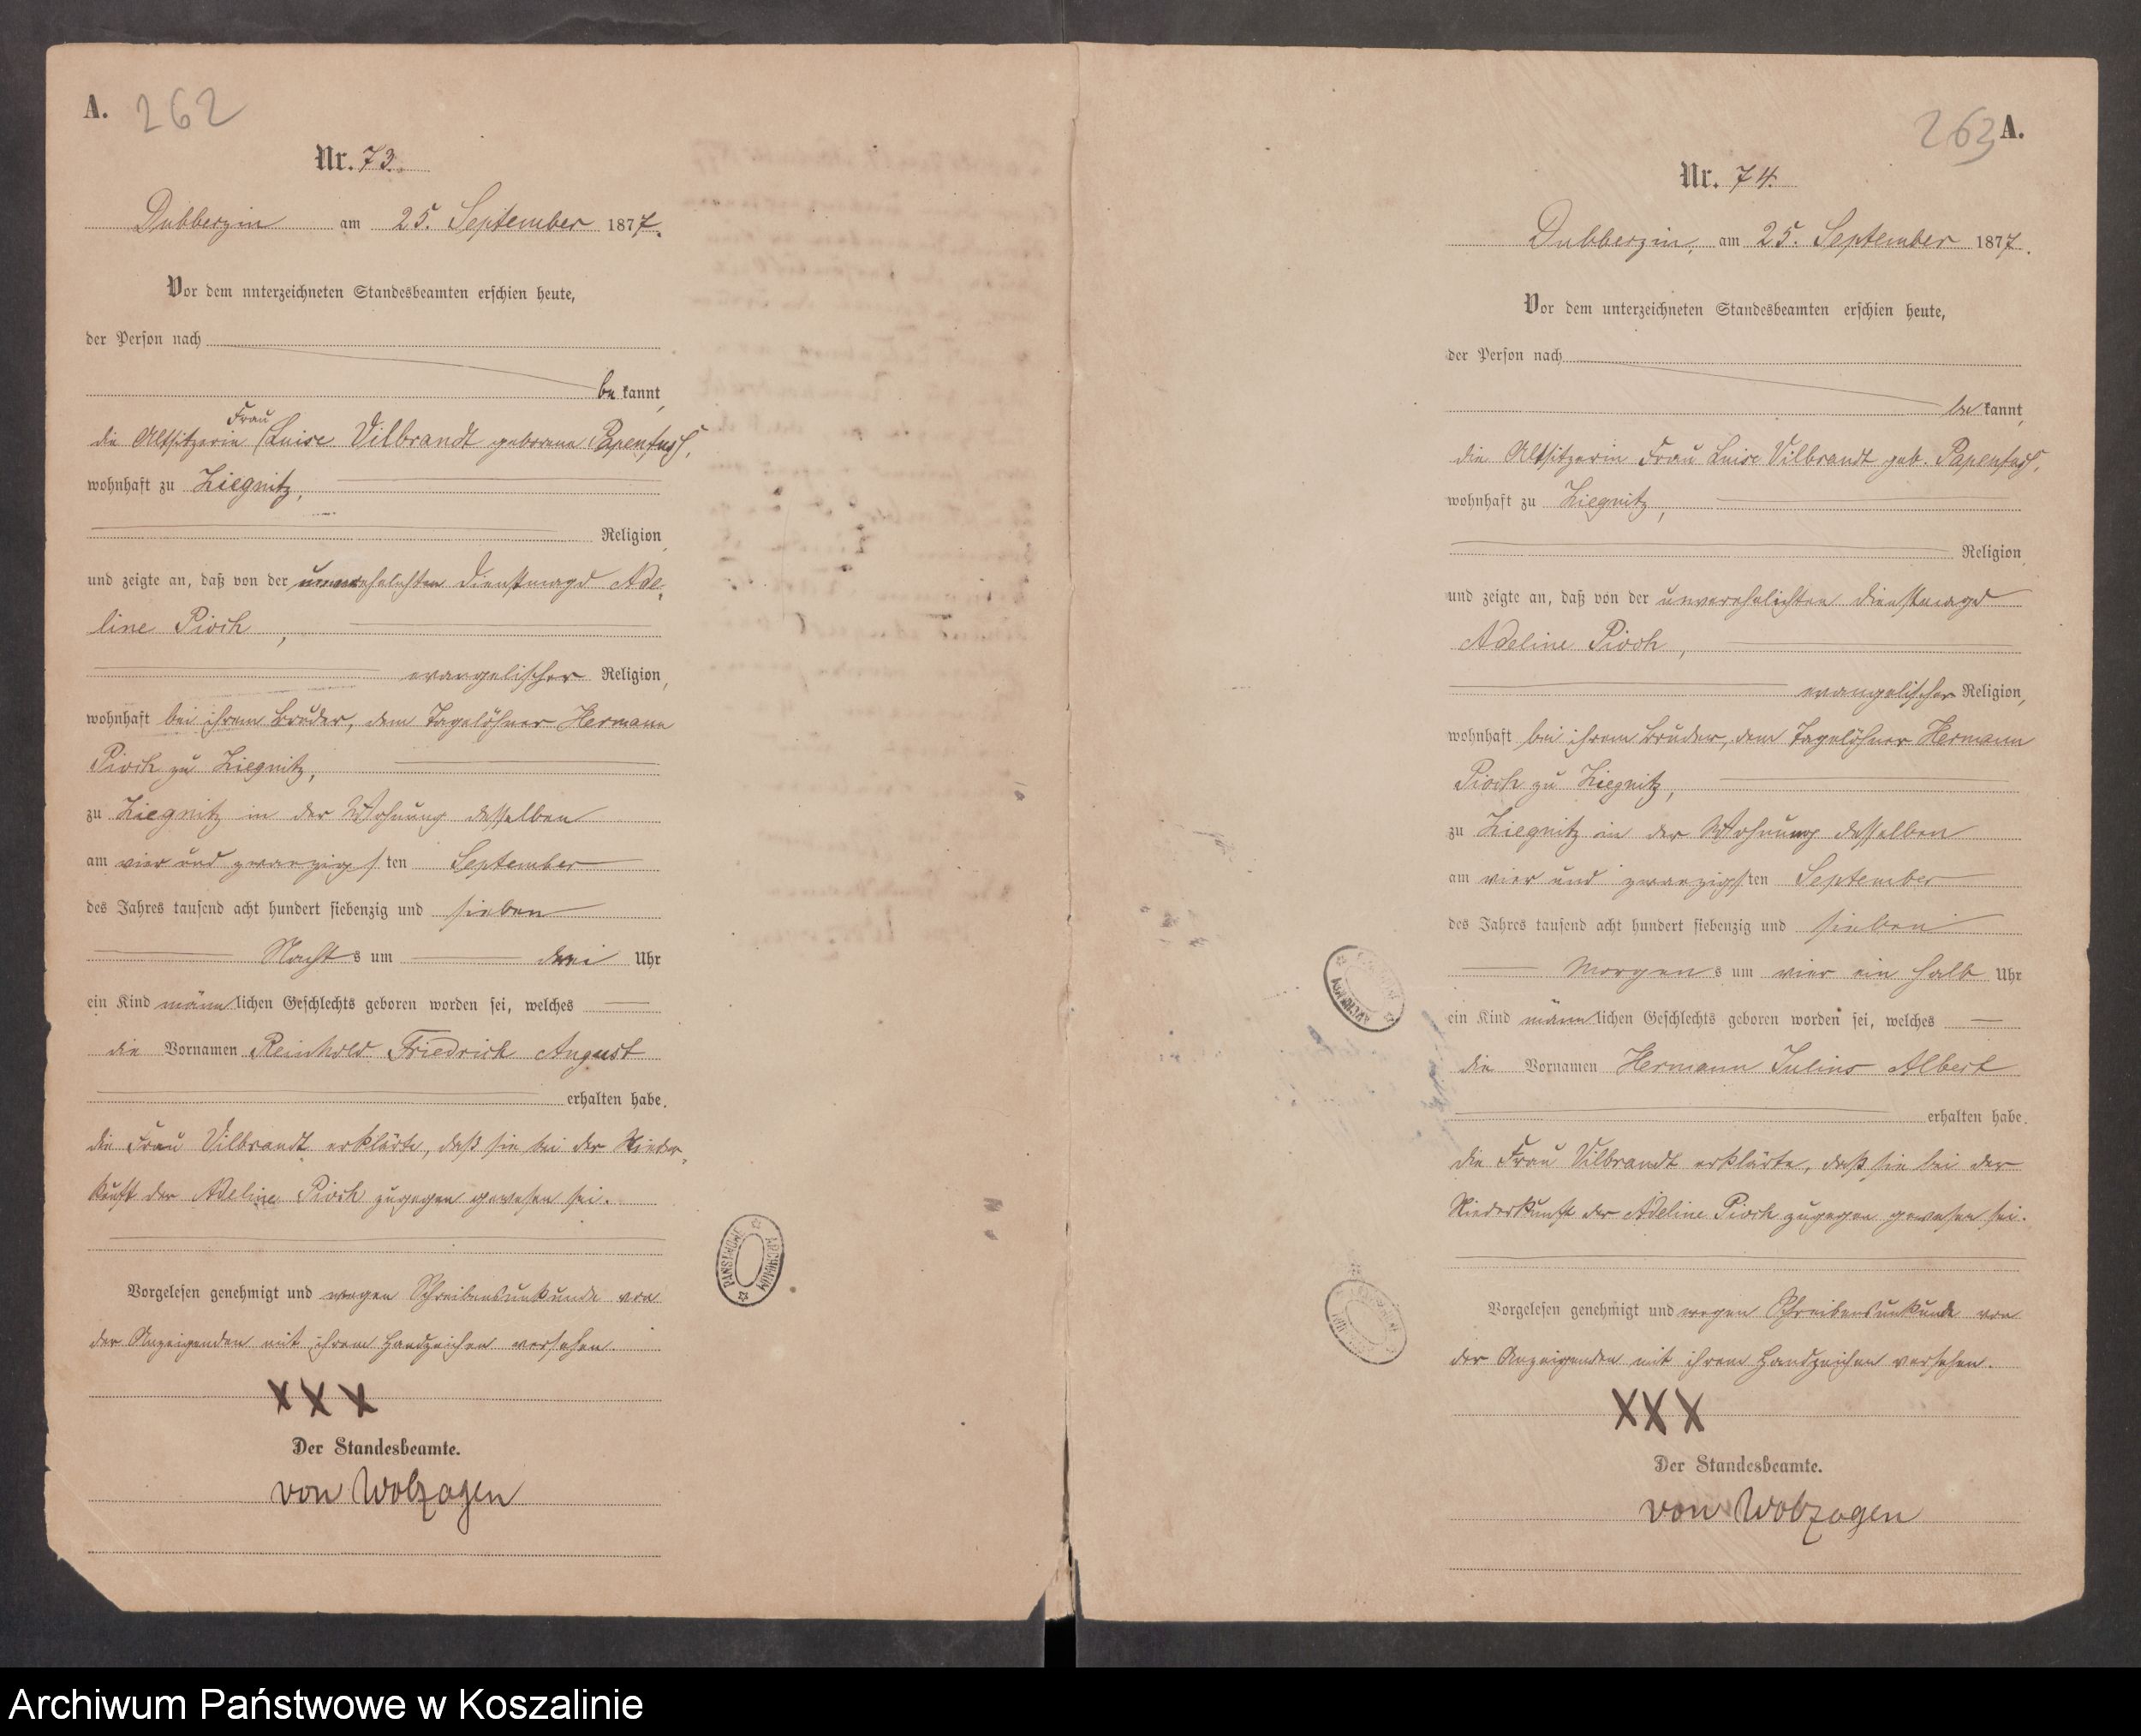 A.
262
Nr. 73.
Dubberzin am 25. September 1877.
Vor dem nnterzeichneten Standesbeamten erschien heute,
der Person nach
be kannt,
Frau
die Altsitzerin Luise Vilbrandt geborene Papenfuß,
wohnhaft zu Ziegnitz,
Religion,
und zeigte an, daß von der unverehelichten Dienstmagd Ade-
line Pioch,
evangelischer Religion,
wohnhaft bei ihrem Bruder, dem Tagelöhner Hermann
Pioch zu Ziegnitz,
zu Ziegnitz in der Wohnung desselben
am vier und zwanzigsten September
des Jahres tausend acht hundert siebenzig und sieben
Nachts um drei Uhr
ein Kind männlichen Geschlechts geboren worden sei, welches
die Vornamen Reinhold Friedrich August
erhalten habe.
die Frau Vilbrandt erklärte, daß sie bei der Nieder-
kunft der Adeline Pioch zugegen gewesen sei.
Vorgelesen genehmigt und wegen Schreibensunkunde von
der Anzeigenden mit ihrem Handzeichen versehen.
XXX
Der Standesbeamte.
von Wolzogen
ARCHIWUM PAŃSTWOWE
263 A.
Nr. 74.
Dubberzin, am 25. September 1877.
Vor dem unterzeichneten Standesbeamten erschien heute,
der Person nach
be kannt,
die Altsitzerin Frau Luise Vilbrandt geb. Papenfuß,
wohnhaft zu Ziegnitz,
Religion,
und zeigte an, daß von der unverehelichten Dienstmagd
Adeline Pioch,
evangelischer Religion,
wohnhaft bei ihrem Bruder, dem Tagelöhner Hermann
Pioch zu Ziegnitz,
zu Ziegnitz in der Wohnung desselben
am vier und zwanzigsten September
des Jahres tausend acht hundert siebenzig und sieben
Morgens um vier ein halb Uhr
ein Kind männlichen Geschlechts geboren worden sei, welches
die Vornamen Hermann Julius Albert
erhalten habe.
die Frau Vilbrandt erklärte, daß sie bei der
Niederkunft der Adeline Pioch zugegen gewesen sei.
Vorgelesen genehmigt und wegen Schreibensunkunde von
der Anzeigenden mit ihrem Handzeichen versehen.
XXX
Der Standesbeamte.
von Wolzogen
Archiwum Państwowe w Koszalinie